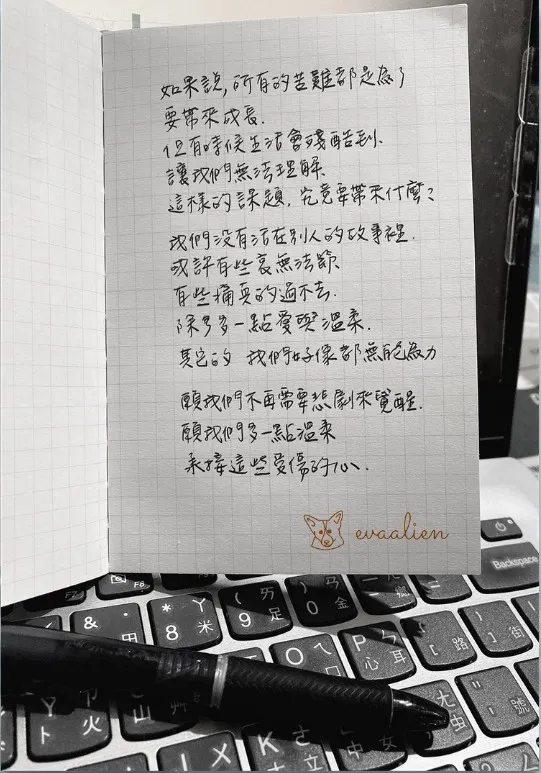 如果說,所有的苦難都是為了
要帶來成長.
但有時候生活會殘酷到.
讓我們無法理解.
這樣的課題,究竟要帶來什麼?
我們沒有活在別人的故事裡.
或許有些哀無法節.
有些痛真的過不去.
除了多一點愛與溫柔.
其它的 我們好像都無能為力
願我們不再需要悲劇來覺醒.
願我們多一點溫柔
承接這些受傷的心.
evaalien
Backspace
F6
F8
& 7
* ㄚ
8 米
( ㄞ
9 足
) ㄢ
0 金
O ㄟ
人
P ㄣ
心 耳
[ 路
] 街
ㄗ
火
山
I X
K ㄜ
大 立
中 女
ㄤ
虫
" 號